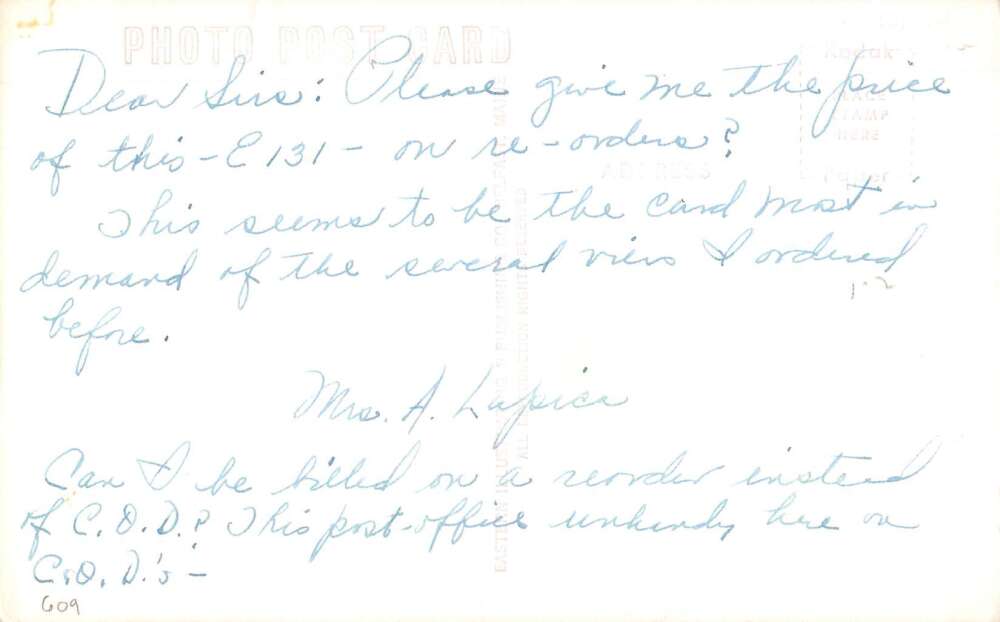 PHOTO POST CARD
Kodak
PLACE
STAMP
HERE
Paper
ADDRESS
Dear Sirs: Please give me the price
of this - E 131 - on re-orders?
This seems to be the card most in
demand of the several views I ordered
before.
1-2
Mrs. A. Lapica
Can I be billed on a reorder instead
of C.O.D.? This post-office unhandy here on
C.O.D.'s -
609
EASTERN ILLUSTRATING & PUBLISHING CO. BELFAST, MAINE
ALL REPRODUCTION RIGHTS RESERVED